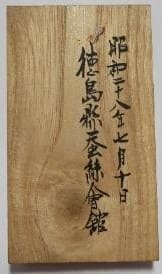 昭和二十八年七月十日
徳島縣蚕絲會館